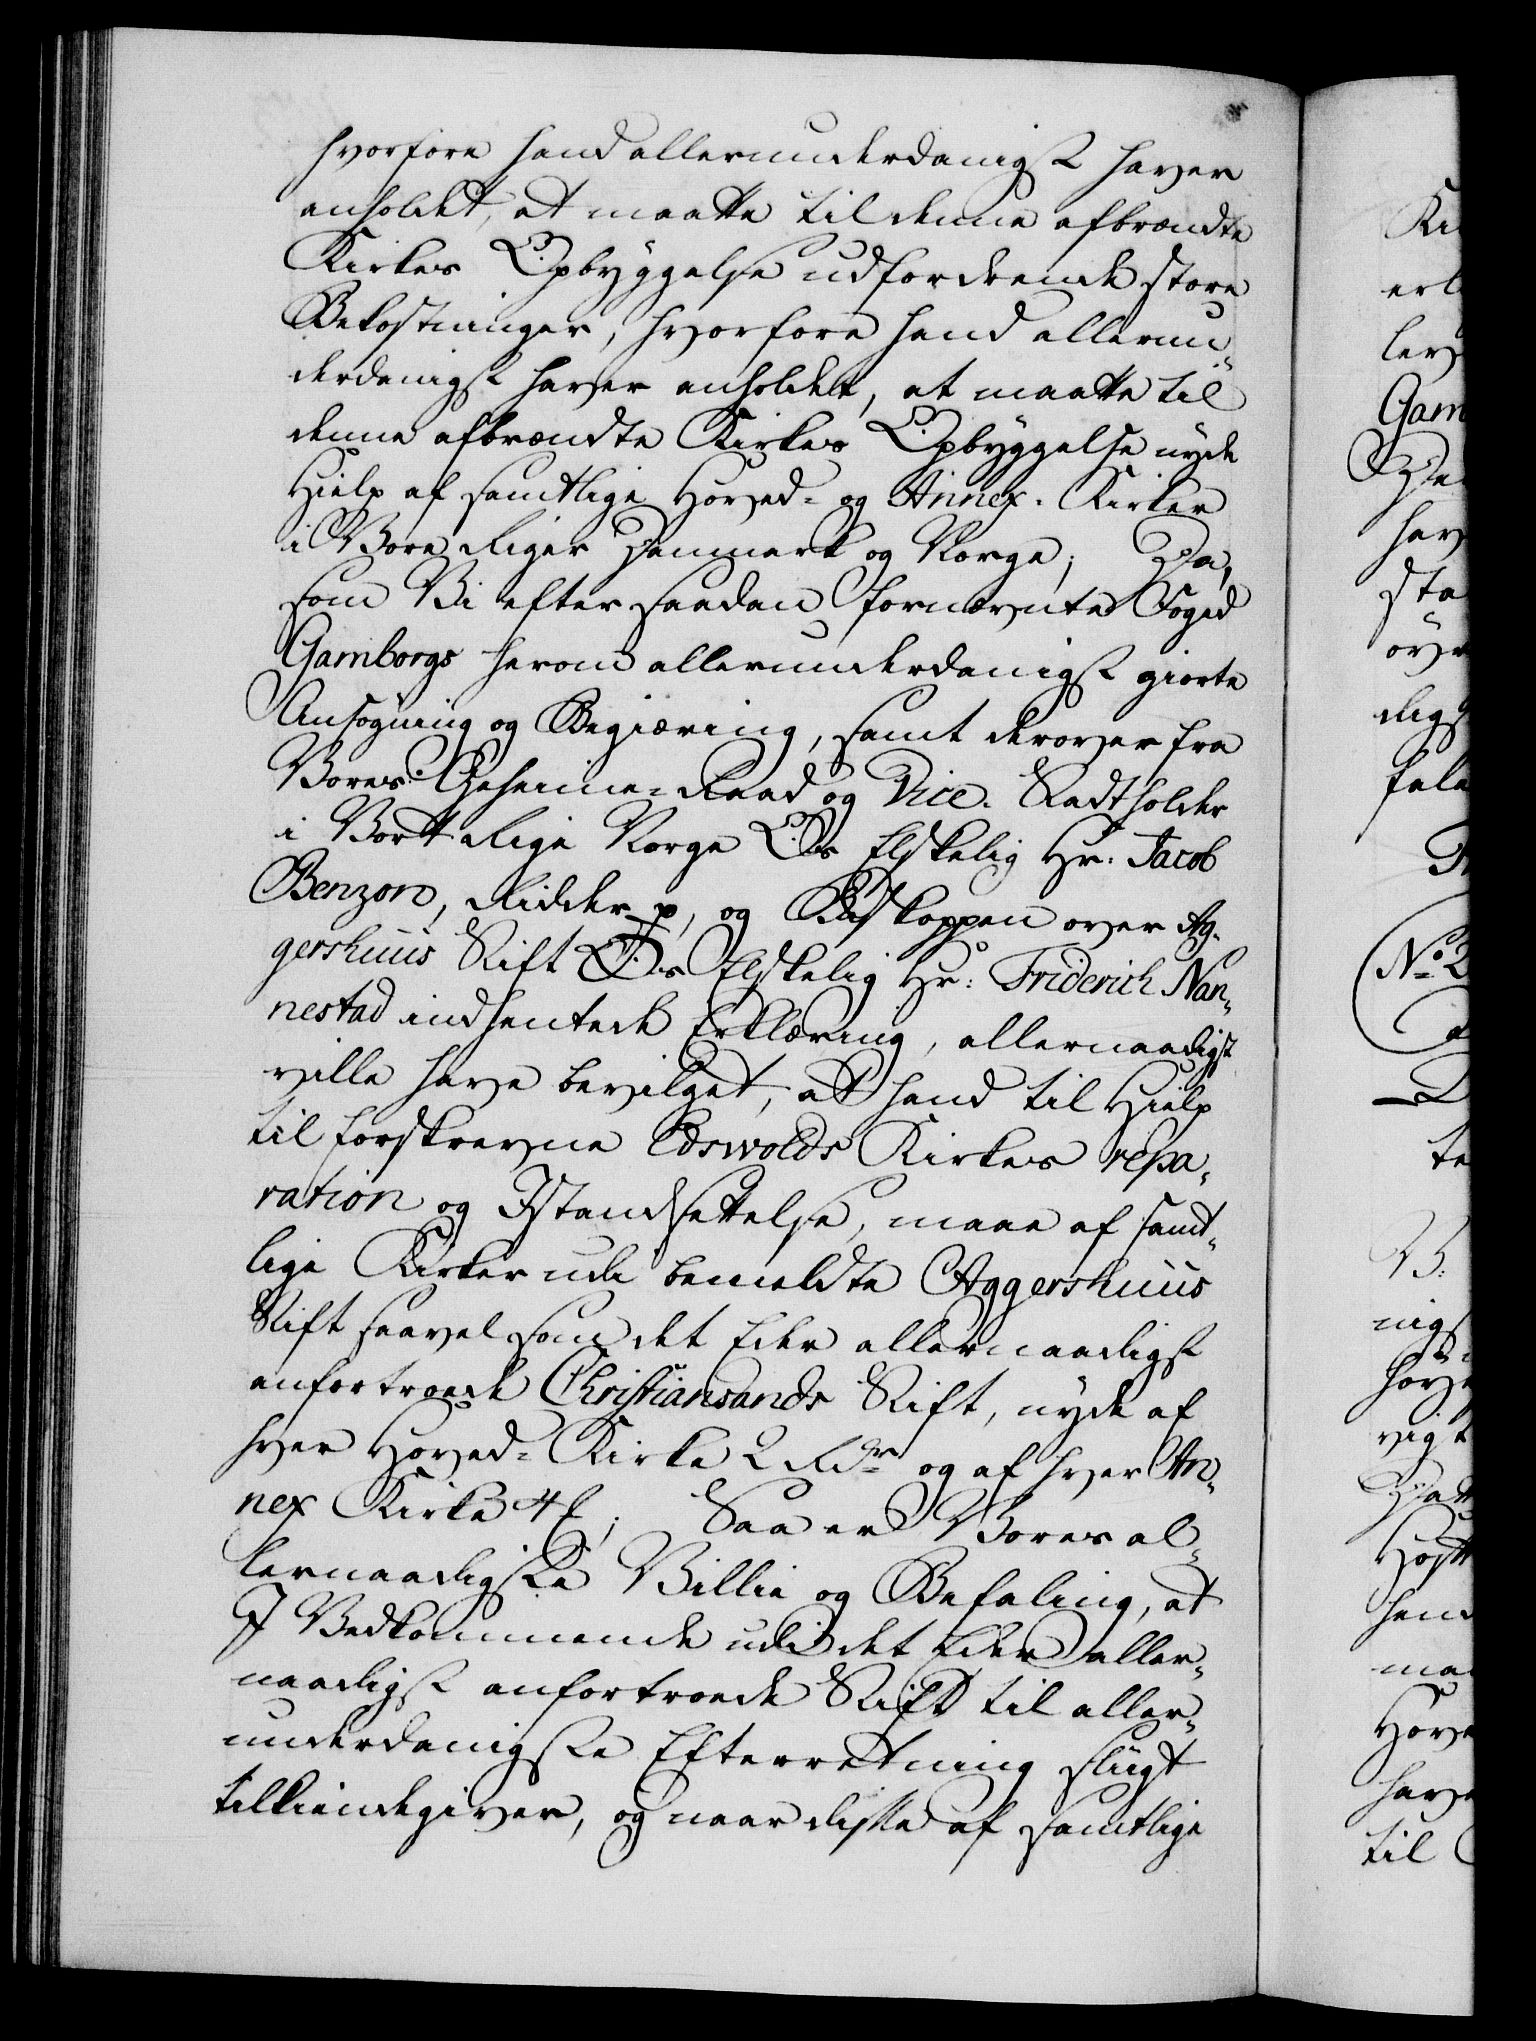 hvorfore hand allerunderdanigst haver
anholdet, at maatte til denne afbrændte
Kirkes Opbyggelse udfordrende store
Bekostninger, hvorfore hand allerun-
derdanigst haver anholdet, at maatte til
denne afbrændte Kirkes Opbyggelse nyde
Hielp af samtlige Hoved- og Annex-Kirker
i Vore Riger Danmark og Norge; Da,
som Vi efter saadan fornævnte Foged
Gamborgs herom allerunderdanigst giorte
Ansøgning og Begiæring, samt derover fra
Vores Geheime-Raad og Vice-Stadtholder
i Vort Rige Norge Os Elskelig Hr: Jacob
Benzon, Ridder p, og Biskoppen over Ag-
gershuus Stift Os Elskelig Hr: Friderich Nan-
nestad indhentede Erklæring, allernaadigst
ville have bevilget, at hand til Hielp
til forskrevne Edswolds Kirkes repa-
ration og Istandsættelse, maae af samt-
lige Kirker udi bemeldte Aggershuus
Stift saavel som det Eder allernaadigst
anfortroede Christiansands Stift, nyde af
hver Hoved-Kirke 2 Rdr og af hver An-
nex Kirke 4 ; Saa er Vores al-
lernaadigste Villie og Befaling, at
I Vedkommende udi det Eder aller-
naadigst anfortroede Stift til aller-
underdanigste Efterretning sligt
tilkiendegiver, og naar disse af samtlige
Gam
hav
sta
fale
No 2
te
nigs
vigt
hend
Hove
have
til